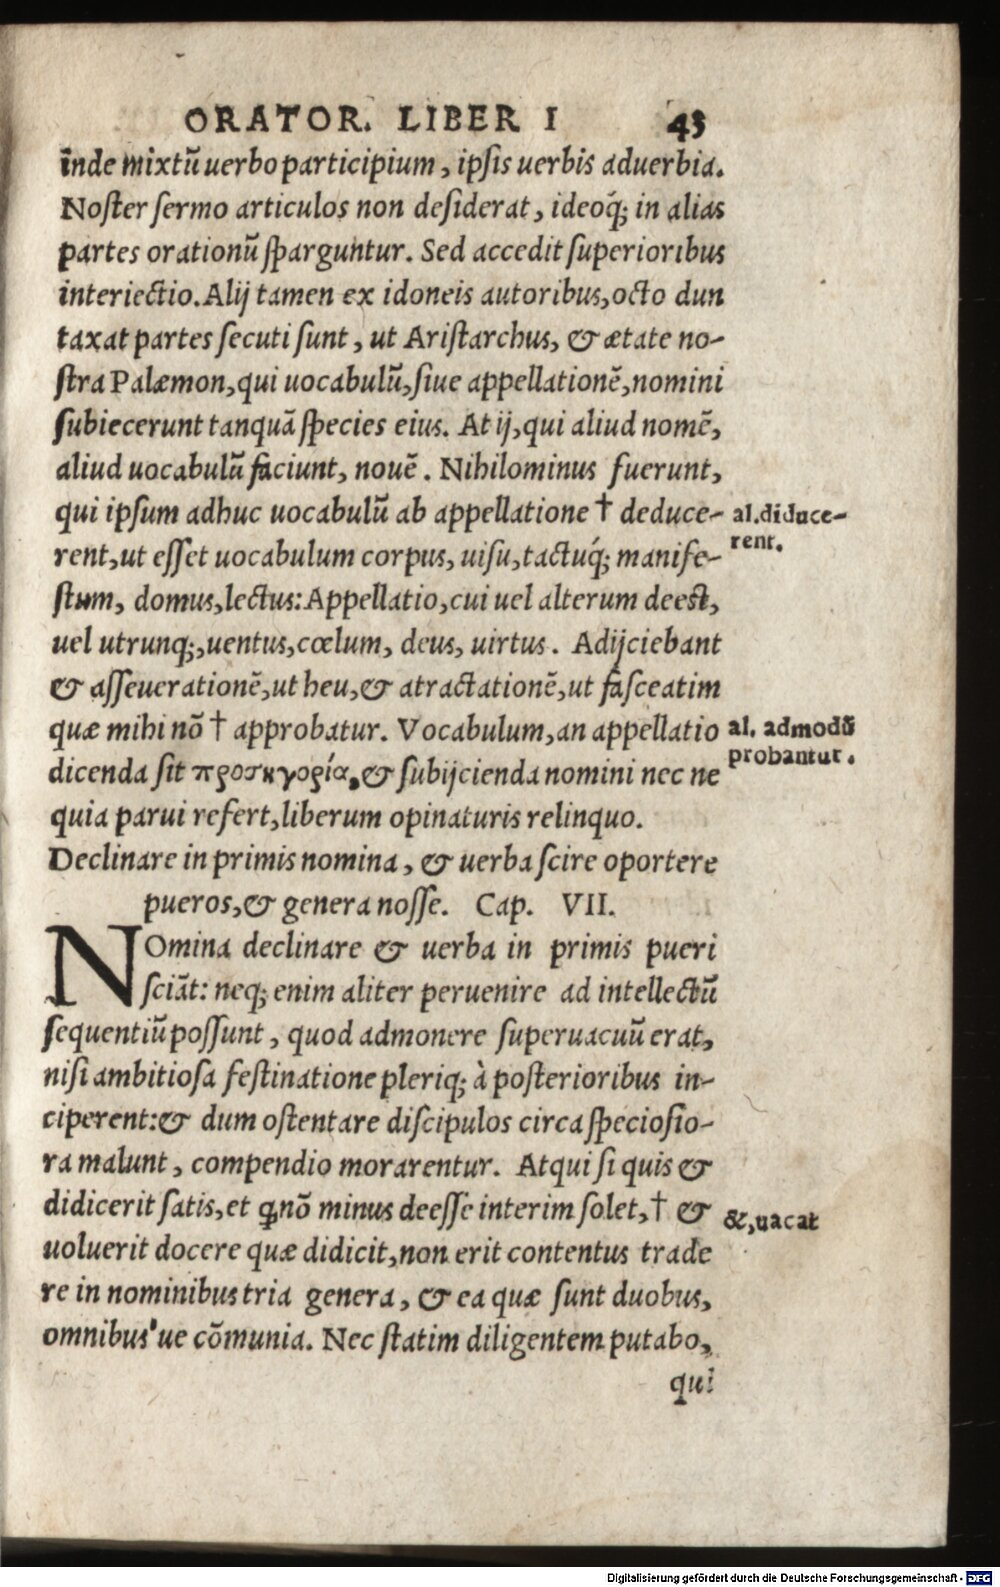 ORATOR. LIBER I 43
inde mixtũ uerbo participium, ipsis uerbis aduerbia.
Noſter ſermo articulos non deſiderat, ideoq́; in alias
partes orationũ ſparguntur. Sed accedit ſuperioribus
interiectio. Alij tamen ex idoneis autoribus, octo dun
taxat partes ſecuti ſunt, ut Ariſtarchus, & ætate no-
ſtra Palæmon, qui uocabulũ, ſiue appellationẽ, nomini
ſubiecerunt tanquã ſpecies eius. At ij, qui aliud nomẽ,
aliud uocabulũ faciunt, nouẽ. Nihilominus fuerunt,
qui ipſum adhuc uocabulũ ab appellatione † deduce- al. diduce-
rent, ut eſſet uocabulum corpus, uiſu, tactuq́; manife- rent.
ſtum, domus, lectus: Appellatio, cui uel alterum deeſt,
uel utrunq;, uentus, cœlum, deus, uirtus. Adijciebant
& aſſeuerationẽ, ut heu, & atractationẽ, ut faſceatim
quæ mihi nõ † approbatur. Vocabulum, an appellatio al. admodũ
dicenda ſit προσηγορία, & ſubijcienda nomini nec ne probantur.
quia parui refert, liberum opinaturis relinquo.
Declinare in primis nomina, & uerba ſcire oportere
pueros, & genera noſſe. Cap. VII.
NOmina declinare & uerba in primis pueri
ſciãt: neq; enim aliter peruenire ad intellectũ
ſequentiũ poſſunt, quod admonere ſuperuacuũ erat,
niſi ambitioſa feſtinatione pleriq; à poſterioribus in-
ciperent: & dum oſtentare diſcipulos circa ſpecioſio-
ra malunt, compendio morarentur. Atqui ſi quis &
didicerit ſatis, et ꝙ nõ minus deeſſe interim ſolet, † & &, uacat
uoluerit docere quæ didicit, non erit contentus trade
re in nominibus tria genera, & ea quæ ſunt duobus,
omnibus'ue cõmunia. Nec ſtatim diligentem putabo,
qui
Digitalisierung gefördert durch die Deutsche Forschungsgemeinschaft - DFG